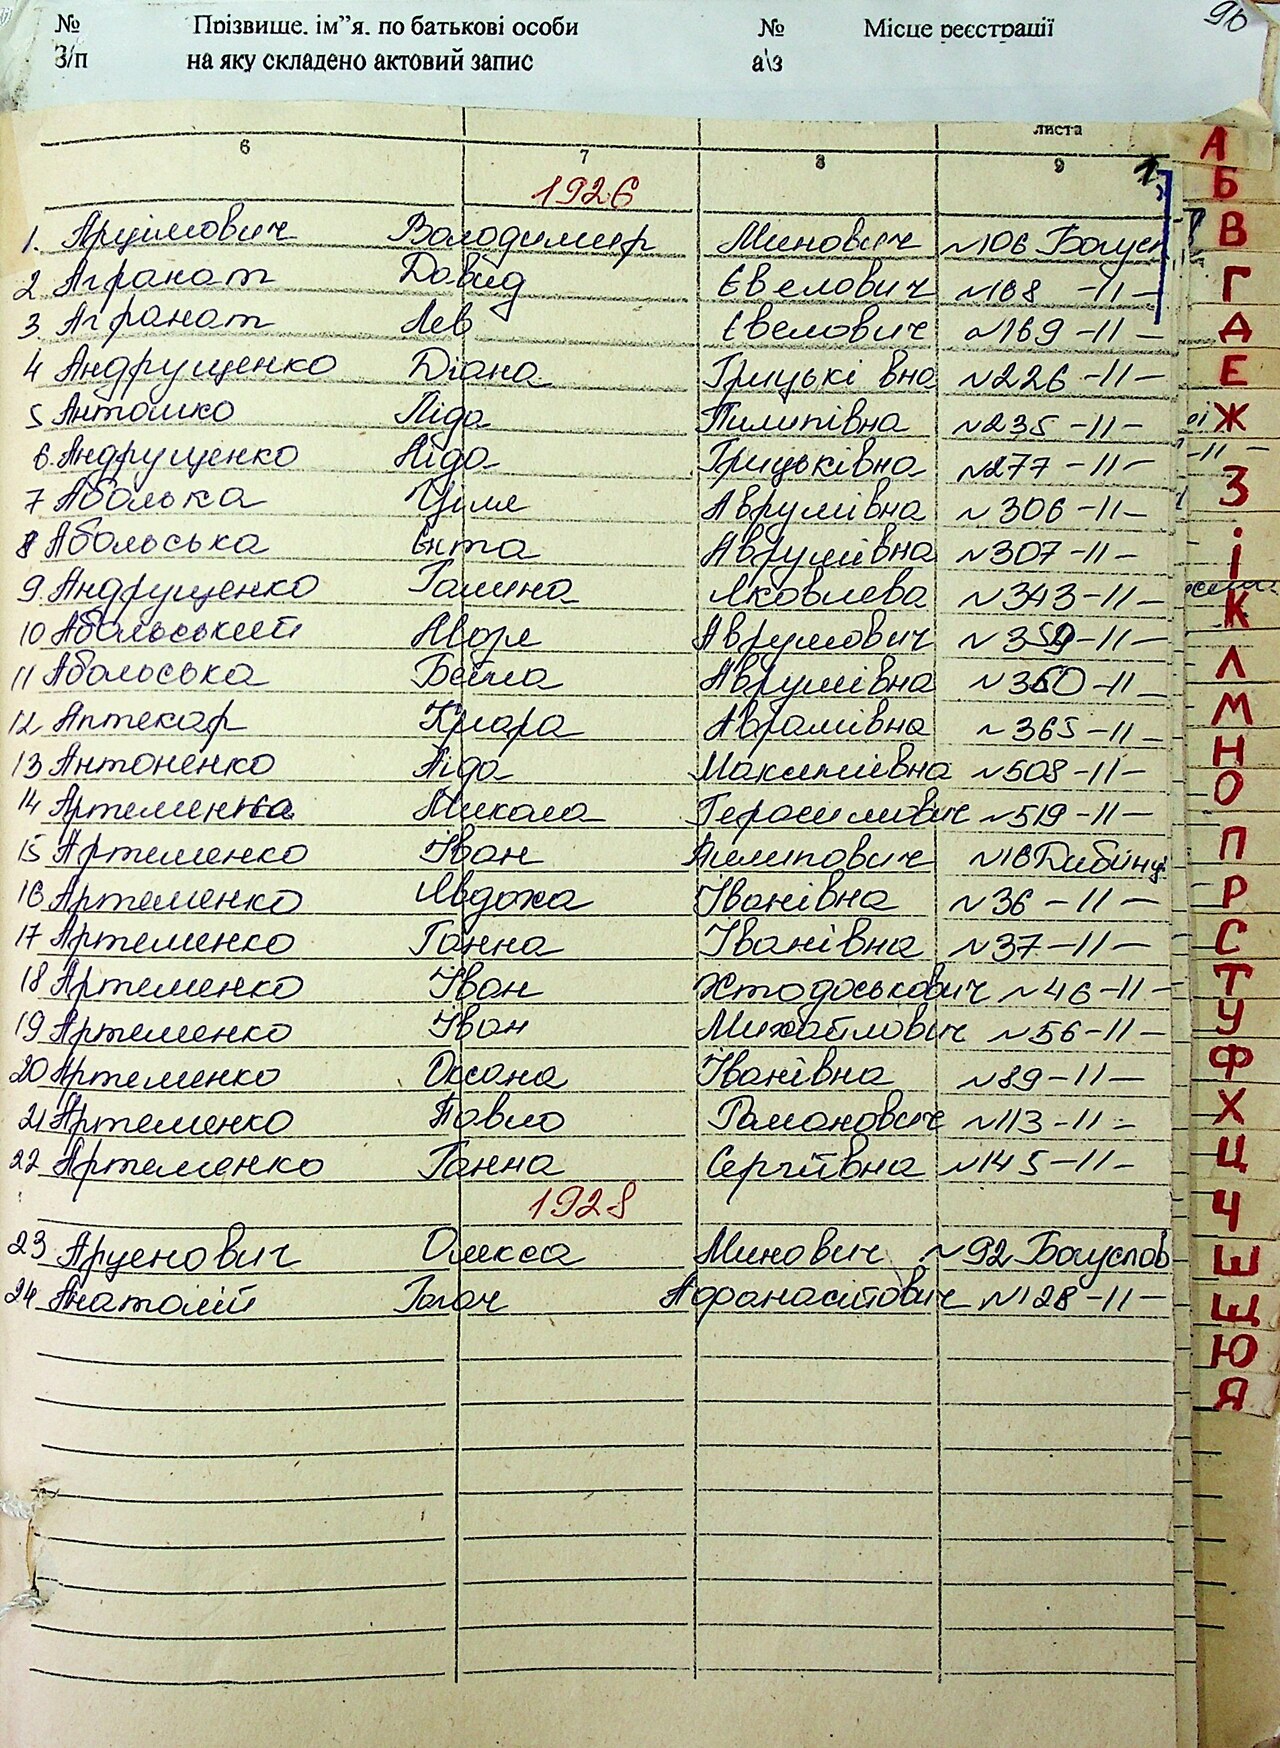 90
№ Прізвище, ім"я, по батькові особи № Місце реєстрації
З/п на яку складено актовий запис а\з
листа
6 7 8 9
1926
1. Володимир Минович №106 Богусл
2 Агранат Довид Євелович №168 -11-
3. Агранат Лев Євелович №169 -11-
4 Андрущенко Діана Грицькі вна №226 -11-
5 Антошко Ліда Пилипівна №235 -11-
6. Андрущенко Ліда Грицьківна №277 -11-
7 Абольська Циля Аврумівна №306 -11-
8 Абольська Ента Аврумівна №307 -11-
9 Андрущенко Галина Яковлева №343 -11-
10 Абольський Аврумович №359 -11-
11 Абольська Бейла Аврумівна №360 -11-
12 Аптекар Клара Аврамівна №365 -11-
13 Антоненко Ліда Максимівна №508 -11-
14 Артеменко Микола Герасимович №519 -11-
15 Артеменко Іван Пилипович №16 Дибинці
16 Артеменко Явдоха Іванівна №36 -11-
17 Артеменко Ганна Іванівна №37 -11-
18 Артеменко Іван №46 -11-
19 Артеменко Іван Михайлович №56 -11-
20 Артеменко Оксана Іванівна №89 -11-
21 Артеменко Павло Романович №113 -11-
22 Артеменко Ганна Сергіївна №145 -11-
1928
23 Арценович Олекса Минович №92 Богуслов
24 Анатолій Афанасійович №128 -11-
А
Б
В
Г
Д
Е
Ж
З
і
К
Л
М
Н
О
П
Р
С
Т
У
Ф
Х
Ц
Ч
Ш
Щ
Ю
Я